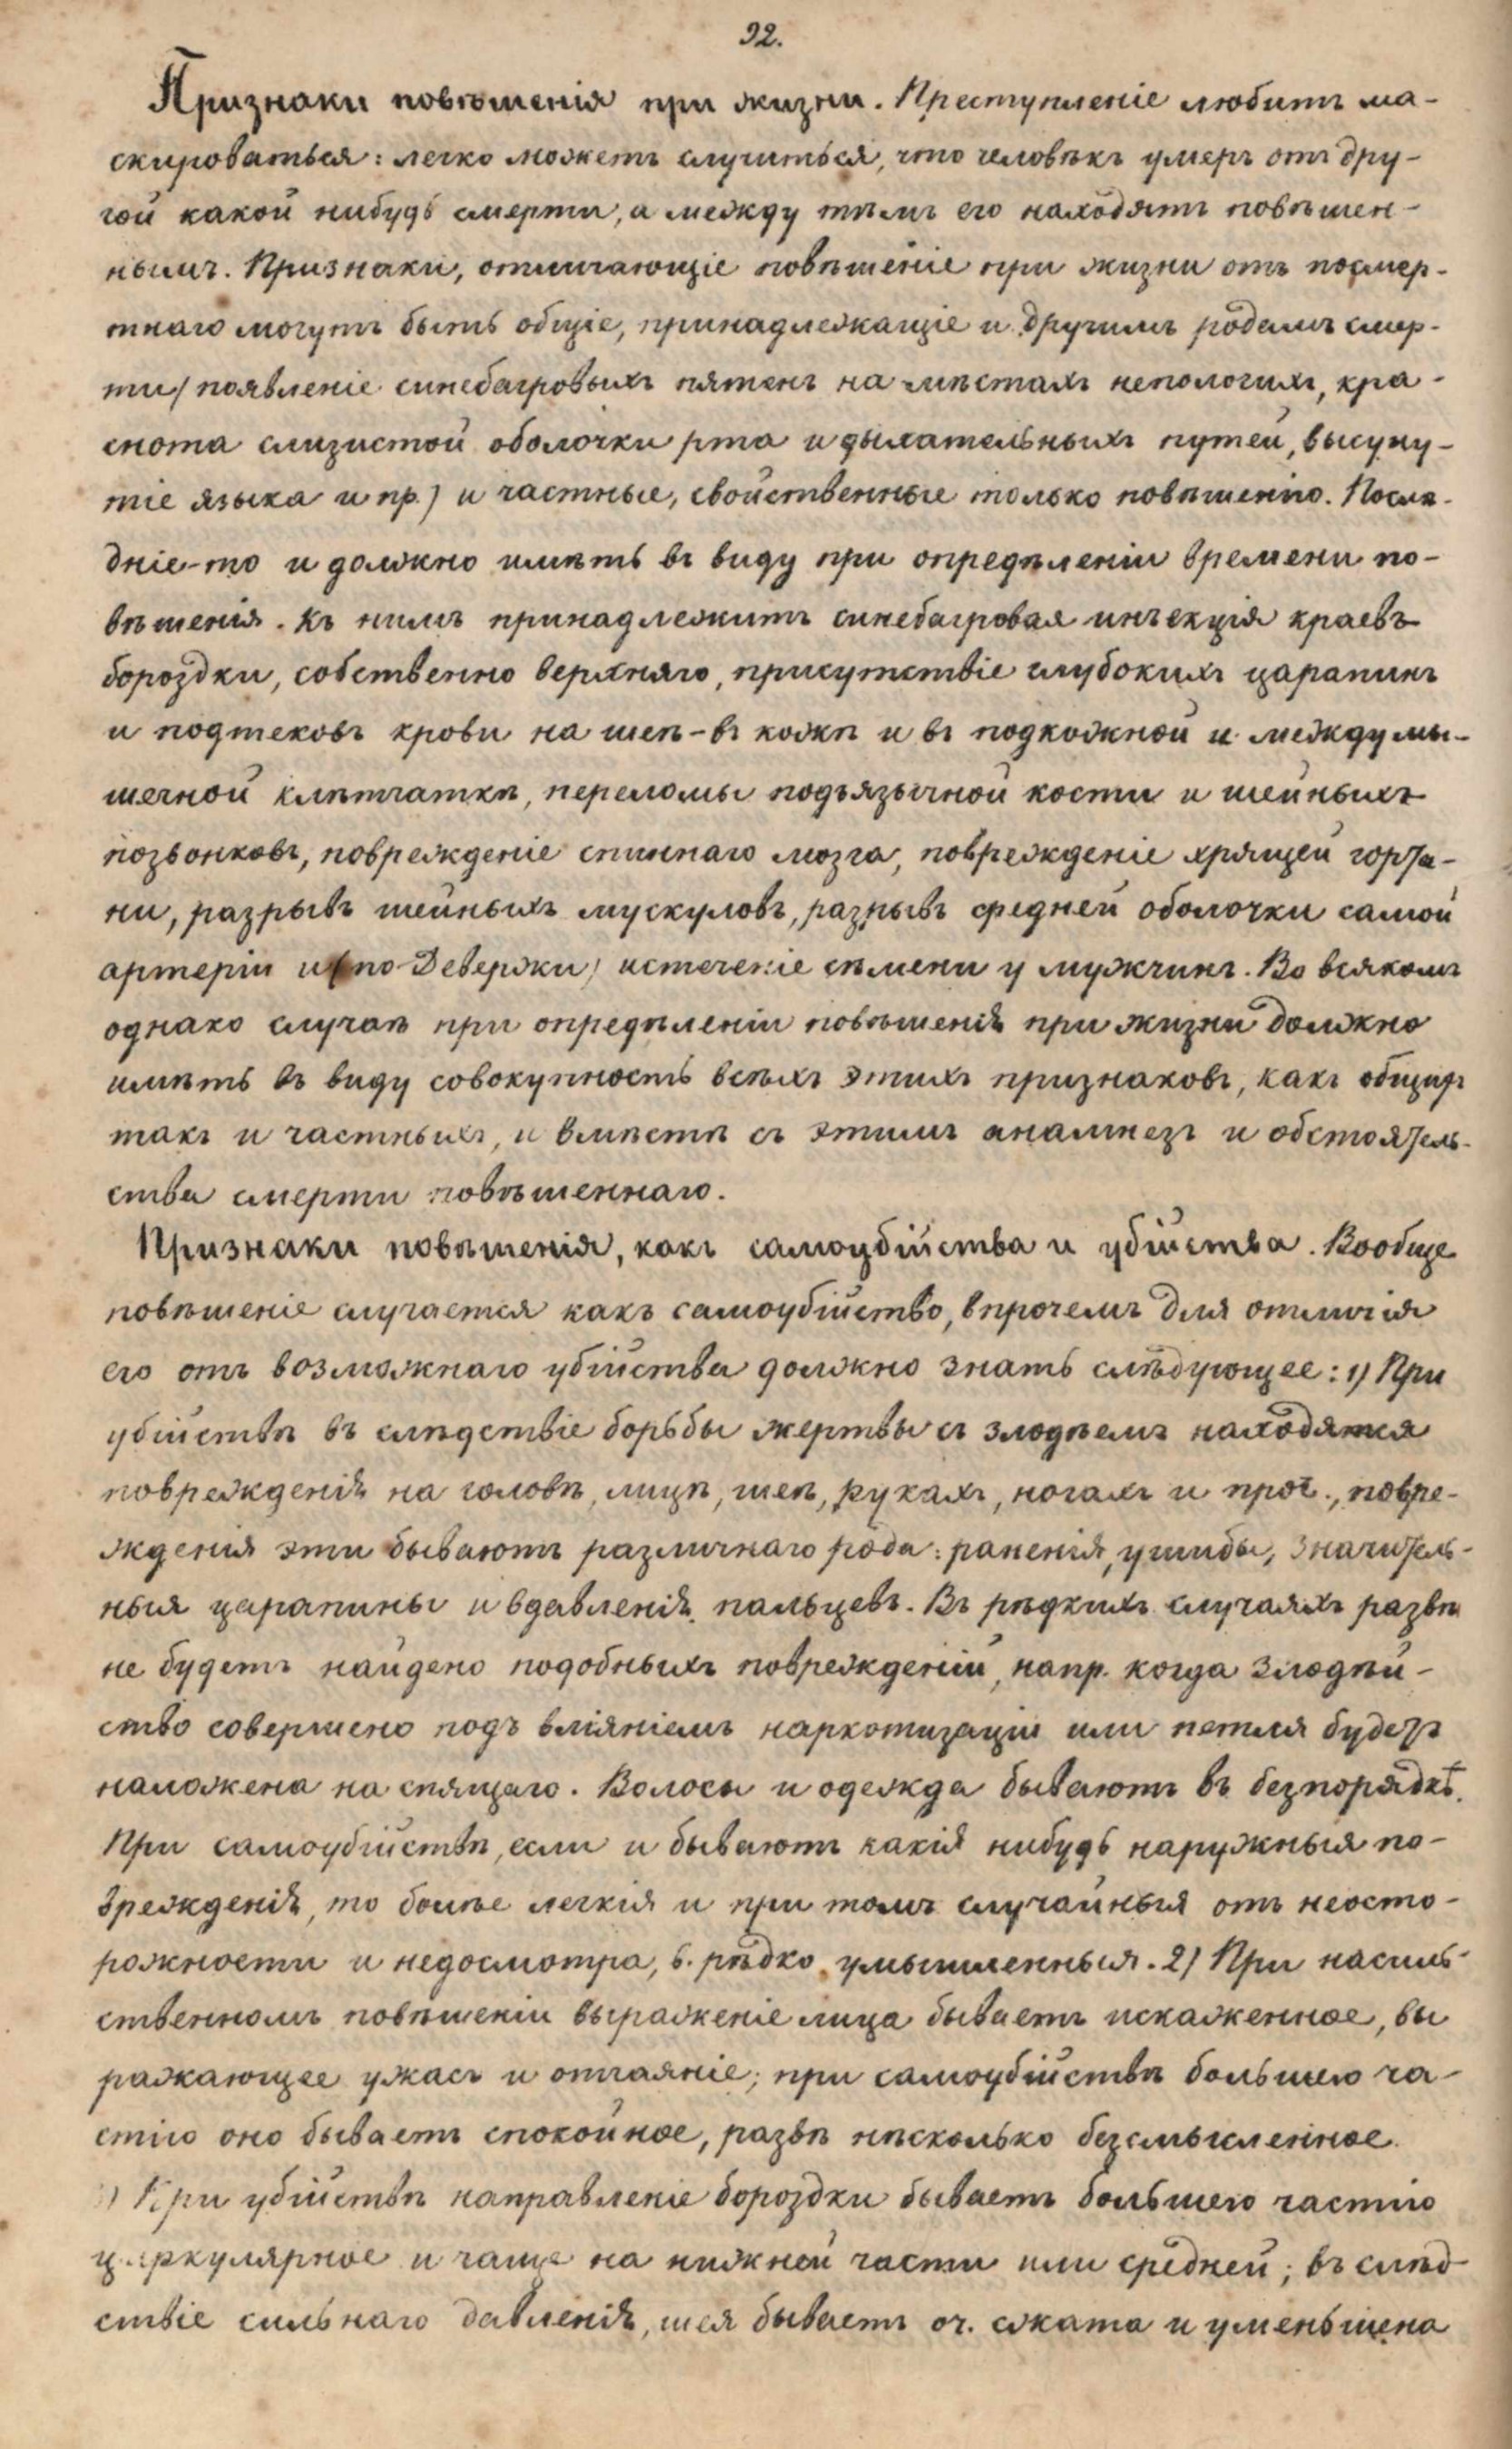 92.
Признаки повѣшенія при жизни. Преступленіе любитъ ма-
скироваться: легко можетъ случиться, что человѣкъ умеръ отъ дру-
гой какой нибудь смерти, а между тѣмъ его находятъ повѣшен-
нымъ. Признаки, отличающіе повѣшеніе при жизни отъ посмер-
тнаго могутъ быть общіе, принадлежащіе и другимъ родамъ смер-
ти (появленіе синебагровыхъ пятенъ на мѣстахъ непологихъ, кра-
снота слизистой оболочки рта и дыхательныхъ путей, высуну-
тіе языка и пр.) и частные, свойственные только повѣшенію. Послѣ-
дніе-то и должно имѣть въ виду при опредѣленіи времени по-
вѣшенія. Къ нимъ принадлежитъ синебагровая инъекція краевъ
бороздки, собственно верхняго, присутствіе глубокихъ царапинъ
и подтековъ крови на шеѣ - въ кожѣ и въ подкожной и междумы-
шечной клѣтчаткѣ, переломы подъязычной кости и шейныхъ
позвонковъ, поврежденіе спиннаго мозга, поврежденіе хрящей горта-
ни, разрывъ шейныхъ мускуловъ, разрывъ средней оболочки самой
артеріи и (по Девержи) истеченіе сѣмени у мужчинъ. Во всякомъ
однако случаѣ при опредѣленіи повѣшенія при жизни должно
имѣть въ виду совокупность всѣхъ этихъ признаковъ, какъ общихъ
такъ и частныхъ, и вмѣстѣ съ этимъ анамнезъ и обстоятель-
ства смерти повѣшеннаго.
Признаки повѣшенія, какъ самоубійства и убійства. Вообще
повѣшеніе случается какъ самоубійство, впрочемъ для отличія
его отъ возможнаго убійства должно знать слѣдующее: 1) При
убійствѣ въ слѣдствіе борьбы жертвы съ злодѣемъ находятся
поврежденія на головѣ, лицѣ, шеѣ, рукахъ, ногахъ и проч., повре-
жденія эти бываютъ различнаго рода: раненія, ушибы, значитель-
ныя царапины и вдавленія пальцевъ. Въ рѣдкихъ случаяхъ развѣ
не будетъ найдено подобныхъ поврежденій, напр. когда злодѣй-
ство совершено подъ вліяніемъ наркотизаціи или петля будетъ
наложена на спящаго. Волосы и одежда бываютъ въ безпорядкѣ.
При самоубійствѣ, если и бываютъ какія нибудь наружныя по-
врежденія, то болѣе легкія и при томъ случайныя отъ неосто-
рожности и недосмотра, б. рѣдко умышленныя. 2) При насиль-
ственномъ повѣшеніи выраженіе лица бываетъ искаженное, вы
ражающее ужасъ и отчаяніе; при самоубійствѣ большею ча-
стію оно бываетъ спокойное, развѣ нѣсколько безсмысленное.
3) При убійствѣ направленіе бороздки бываетъ большею частію
циркулярное и чаще на нижней части или средней; въ слѣд-
ствіе сильнаго давленія, шея бываетъ оч. сжата и уменьшена